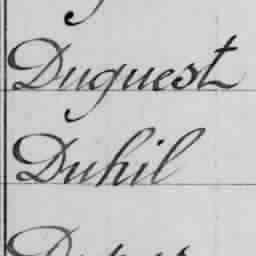 Duguest
Duhil